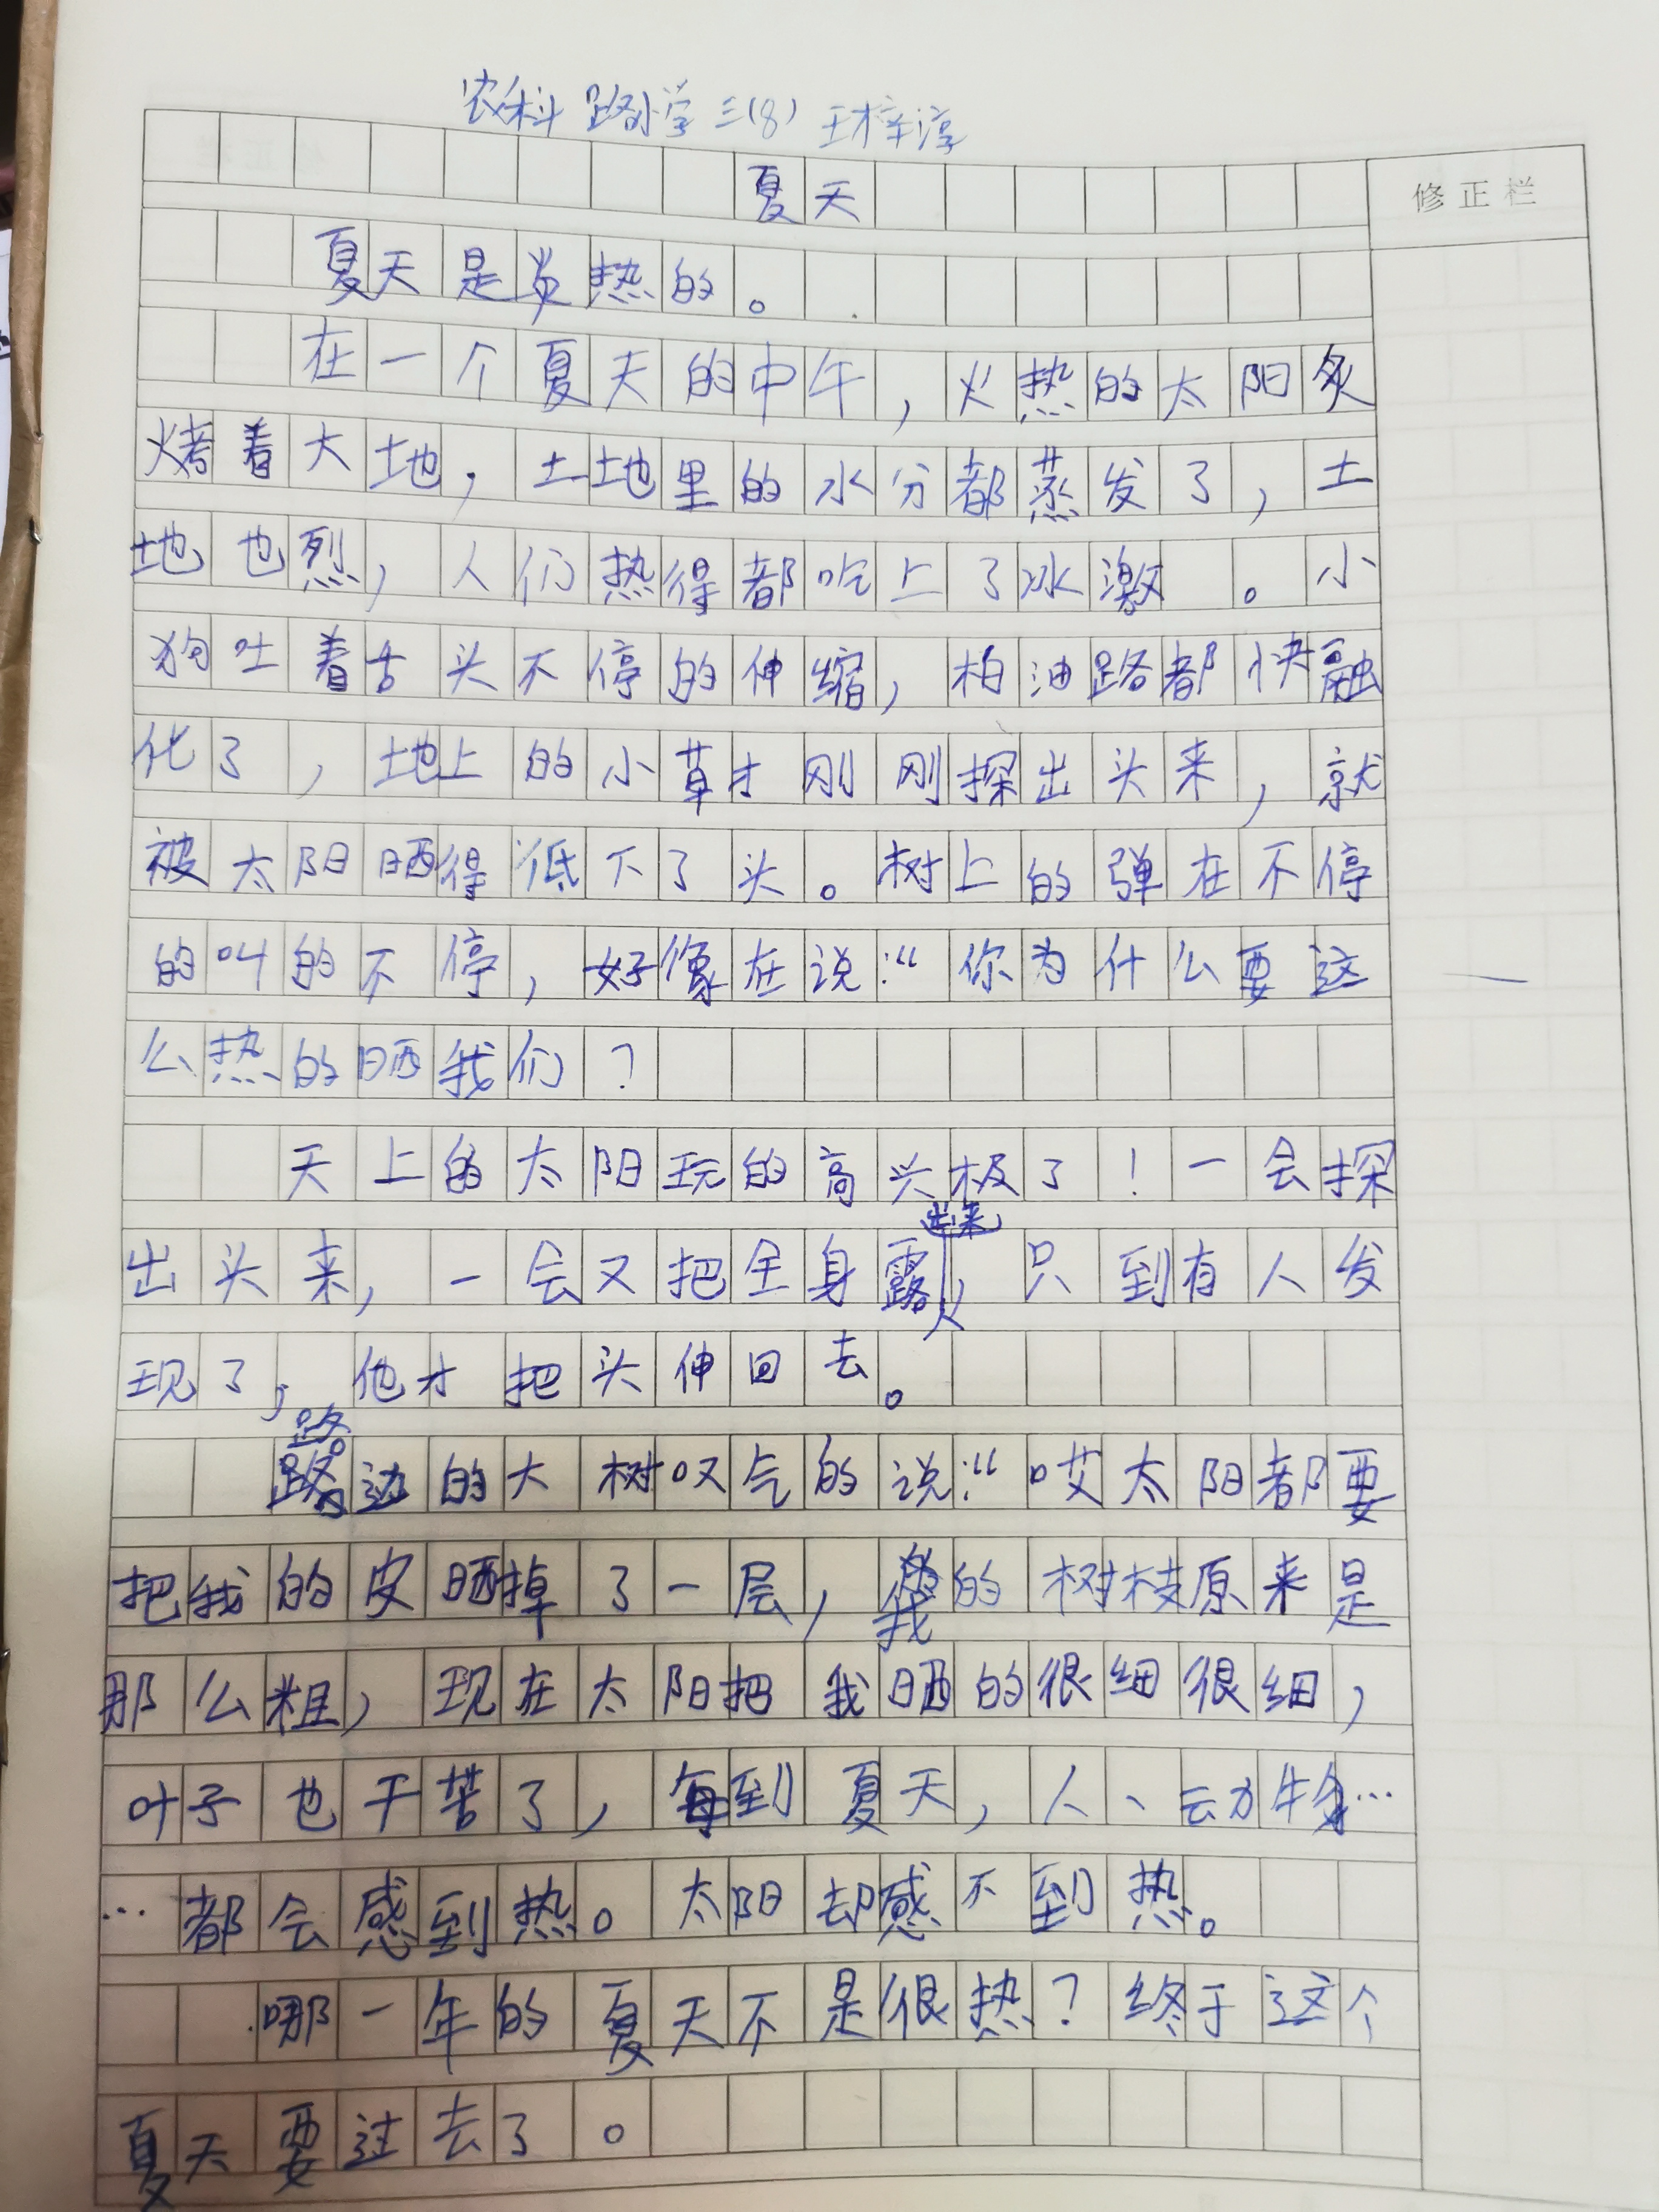 农科路小学三(8) 王梓淳
夏天
修正栏
夏天是炎热的。
在一个夏天的中午,火热的太阳炙
烤着大地,土地里的水分都蒸发了,土
地也烈,人们热得都吃上了冰激 。小
狗吐着舌头不停的伸缩,柏油路都快融
化了,地上的小草才刚刚探出头来,就
被太阳晒得低下了头。树上的弹在不停
的叫的不停,好像在说:“你为什么要这
么热的晒我们?
天上的太阳玩的高兴极了!一会探
出头来,一会又把全身露出来,只到有人发
现了,他才把头伸回去。
路边的大树叹气的说:“哎太阳都要
把我的皮晒掉了一层,我的树枝原来是
那么粗,现在太阳把我晒的很细很细,
叶子也干苦了,每到夏天,人、动物…
…都会感到热。太阳却感不到热。
哪一年的夏天不是很热?终于这个
夏天要过去了。